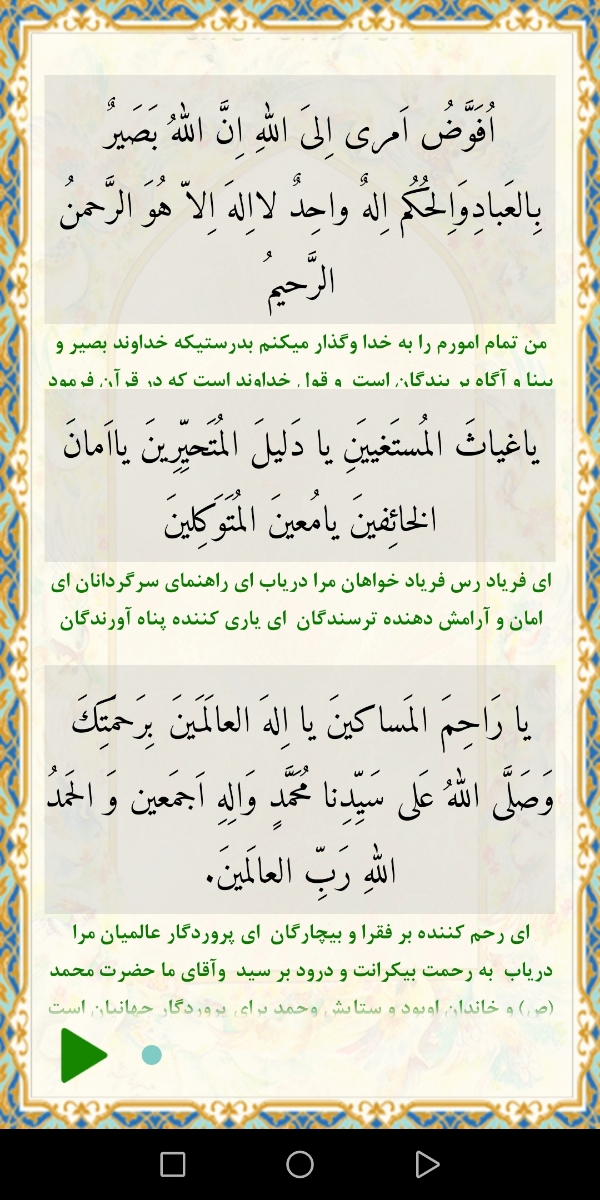 اُفَوَّضُ اَمری اِلیَ اللهِ اِنَّ اللهُ بَصَیرٌ
بِالعَبادِوَاِلحُکُم اِلهٌ واحِدٌ لااِلهَ اِلاّ هُوَ الرَّحمنُ
الرَّحیمُ
من تمام امورم را به خدا وگذار میکنم بدرستیکه خداوند بصیر و
بینا و آگاه بر بندگان است و قول خداوند است که در قرآن فرمود
یاغیاثَ المُستَغییَنِ یا دَلیلَ المُتَحیِّرِینَ یااَمانَ
الخائِفینَ یامُعینَ المُتَوَکِلینَ
ای فریاد رس فریاد خواهان مرا دریاب ای راهنمای سرگردانان ای
امان و آرامش دهنده ترسندگان ای یاری کننده پناه آورندگان
یا رَاحِمَ المَساکینَ یا اِلهَ العالَمَینَ بِرَحمَتِکَ
وَصَلَّی اللهُ عَلی سَیِّدِنا مُحَمَّدٍ وَالِهِ اَجمَعین وَ الحَمدُ
اللهِ رَبِّ العالَمینَ.
ای رحم کننده بر فقرا و بیچارگان ای پروردگار عالمیان مرا
دریاب به رحمت بیکرانت و درود بر سید وآقای ما حضرت محمد
(ص) و خاندان اوبود و ستایش وحمد برای پروردگار جهانیان است